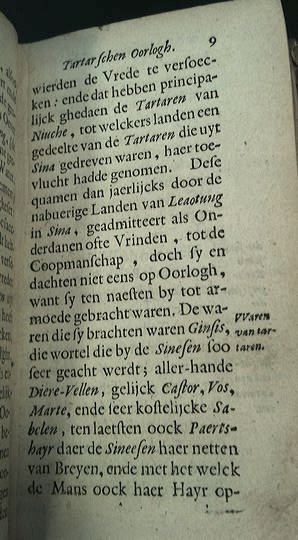 Tartarſchen Oorlogh. 9
wierden de Vrede te verſoec-
ken; ende dat hebben principa-
lijck ghedaen de Tartaren van
Niuche, tot welckers landen een
gedeelte van de Tartaren die uyt
Sina gedreven waren, haer toe-
vlucht hadde genomen. Deſe
quamen dan jaerlijcks door de
nabuerige Landen van Leaotung
in Sina, geadmitteert als On-
derdanen ofte Vrinden, tot de
Coopmanſchap, doch ſy en
dachten niet eens op Oorlogh,
want ſy ten naeſten by tot ar-
moede gebracht waren. De wa-
ren die ſy brachten waren Ginſis,
die wortel die by de Sineſen ſoo
ſeer geacht werdt; aller-hande
Diere-Vellen, gelijck Caſtor, Vos,
Marte, ende ſeer koſtelijcke Sa-
belen, ten laetſten oock Paerts-
hayr daer de Sineeſen haer netten
van Breyen, ende met het welck
de Mans oock haer Hayr op-
VVaren
van tar-
taren.